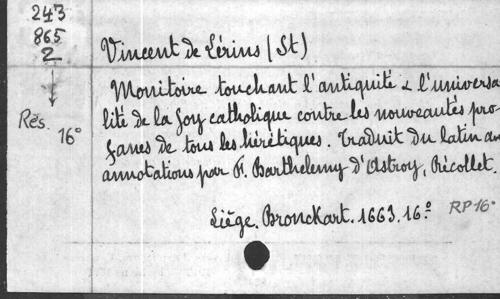 243
865
2
Rés. 16°
Vincent de Lérins (St)
Monitoire touchant l'antiquité & l'universa
lité de la foy catholique contre les nouveautés pro
fanes de tous les hérétiques. Traduit du latin a
annotations par F. Barthelemy d'Astroy, Récollet.
Liège. Bronckart. 1663. 16°
RP 16°